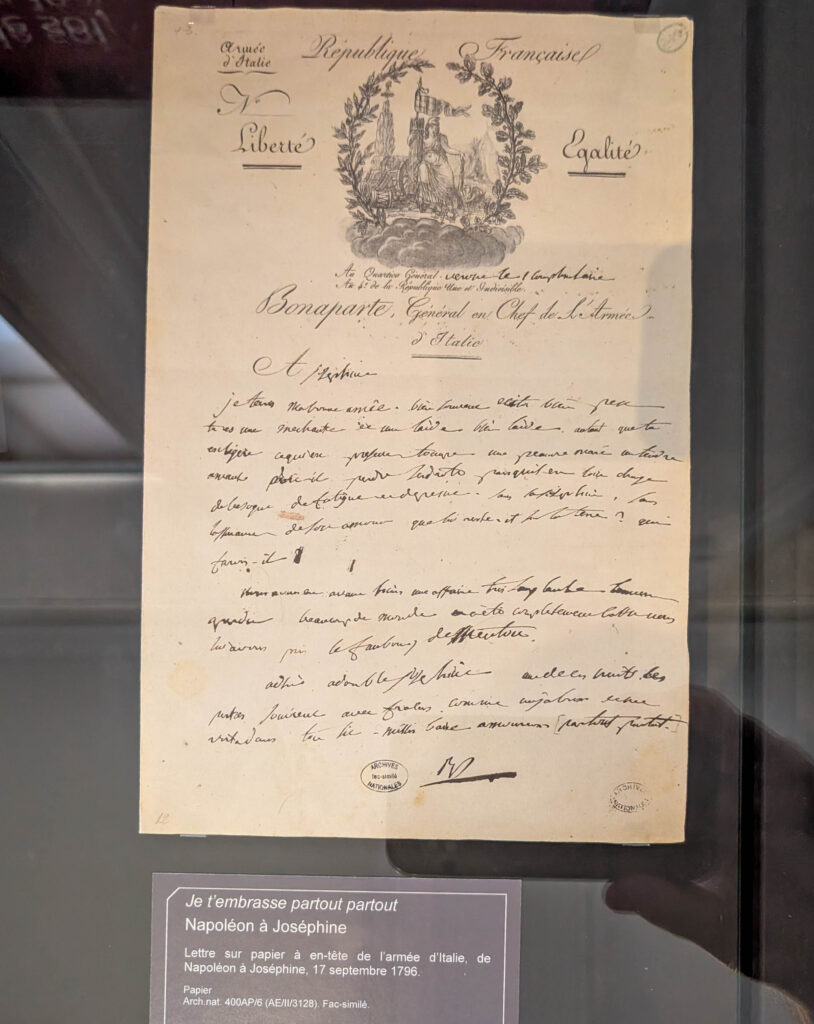 Armée
d'Italie
République Française
N
Liberté
Egalité
Au Quartier Général verone le 1 complimentaire
An 4.e de la République Une et Indivisible.
Bonaparte, Général en Chef de l'Armée
d'Italie
A josephine
je t'ecris ma bonne amiée bien souvent et toi bien peu
tu es une mechante et une laide bien laide autant que tu
es legere. tromper une pauvre mari un tendre
amant doit-il perdre parcequ'il est loin charge
de besogne de fatigue et de peine. sans sa josephine, sans
de son amour que lui reste-t-il sur la terre? que
farois-il
nous avons eu avant hier une affaire tres sanglante l'ennemi
a perdu beaucoup de monde et a été completement battu nous
lui avons pris le faubourg de Mentou.
adieu adorable josephine une de ces nuits les
portes souvrent avec fracas comme un jaloux et me
voila dans ton lit mille baise amoureux partout partout
BP
ARCHIVES
fac-similé
NATIONALES
ARCHIVES
NATIONALES
Je t'embrasse partout partout
Napoléon à Joséphine
Lettre sur papier à en-tête de l'armée d'Italie, de
Napoléon à Joséphine, 17 septembre 1796.
Papier
Arch.nat. 400AP/6 (AE/II/3128). Fac-similé.